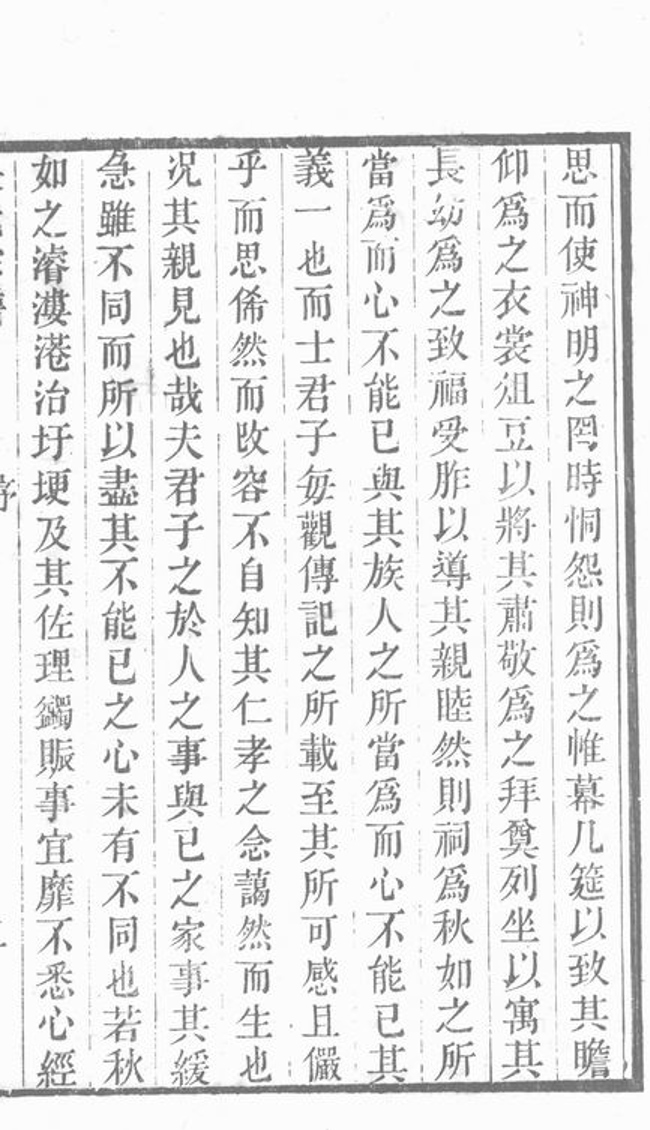 思而使神明之罔時恫怨則爲之帷幕几筵以致其瞻
仰爲之衣裳俎豆以將其肅敬爲之拜奠列坐以寓其
長幼爲之致福受胙以導其親睦然則祠爲秋如之所
當爲而心不能已與其族人之所當爲而心不能已其
義一也而士君子每觀傳記之所載至其所可感且儼
乎而思俙然而改容不自知其仁孝之念藹然而生也
况其親見也哉夫君子之於人之事與已之家事其緩
急雖不同而所以盡其不能已之心未有不同也若秋
如之濬漊港治圩埂及其佐理蠲賑事宜靡不悉心經
序